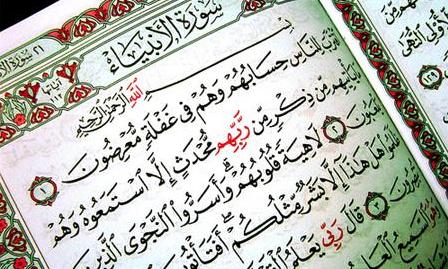 سُورَةُ الأَنبِيَاءِ
بِسْمِ اللَّهِ الرَّحْمَٰنِ الرَّحِيمِ
لِلنَّاسِ حِسَابُهُمْ وَهُمْ فِي غَفْلَةٍ مُّعْرِضُونَ ١
يَأْتِيهِم مِّن ذِكْرٍ مِّن رَّبِّهِم مُّحْدَثٍ إِلَّا ٱسْتَمَعُوهُ وَهُمْ
٢ لَاهِيَةً قُلُوبُهُمْ وَأَسَرُّوا۟ ٱلنَّجْوَى ٱلَّذِينَ
هَلْ هَٰذَا إِلَّا بَشَرٌ مِّثْلُكُمْ أَفَتَأْتُونَ
٣ قَالَ رَبِّي يَعْلَمُ
ٱلسَّمِيعُ